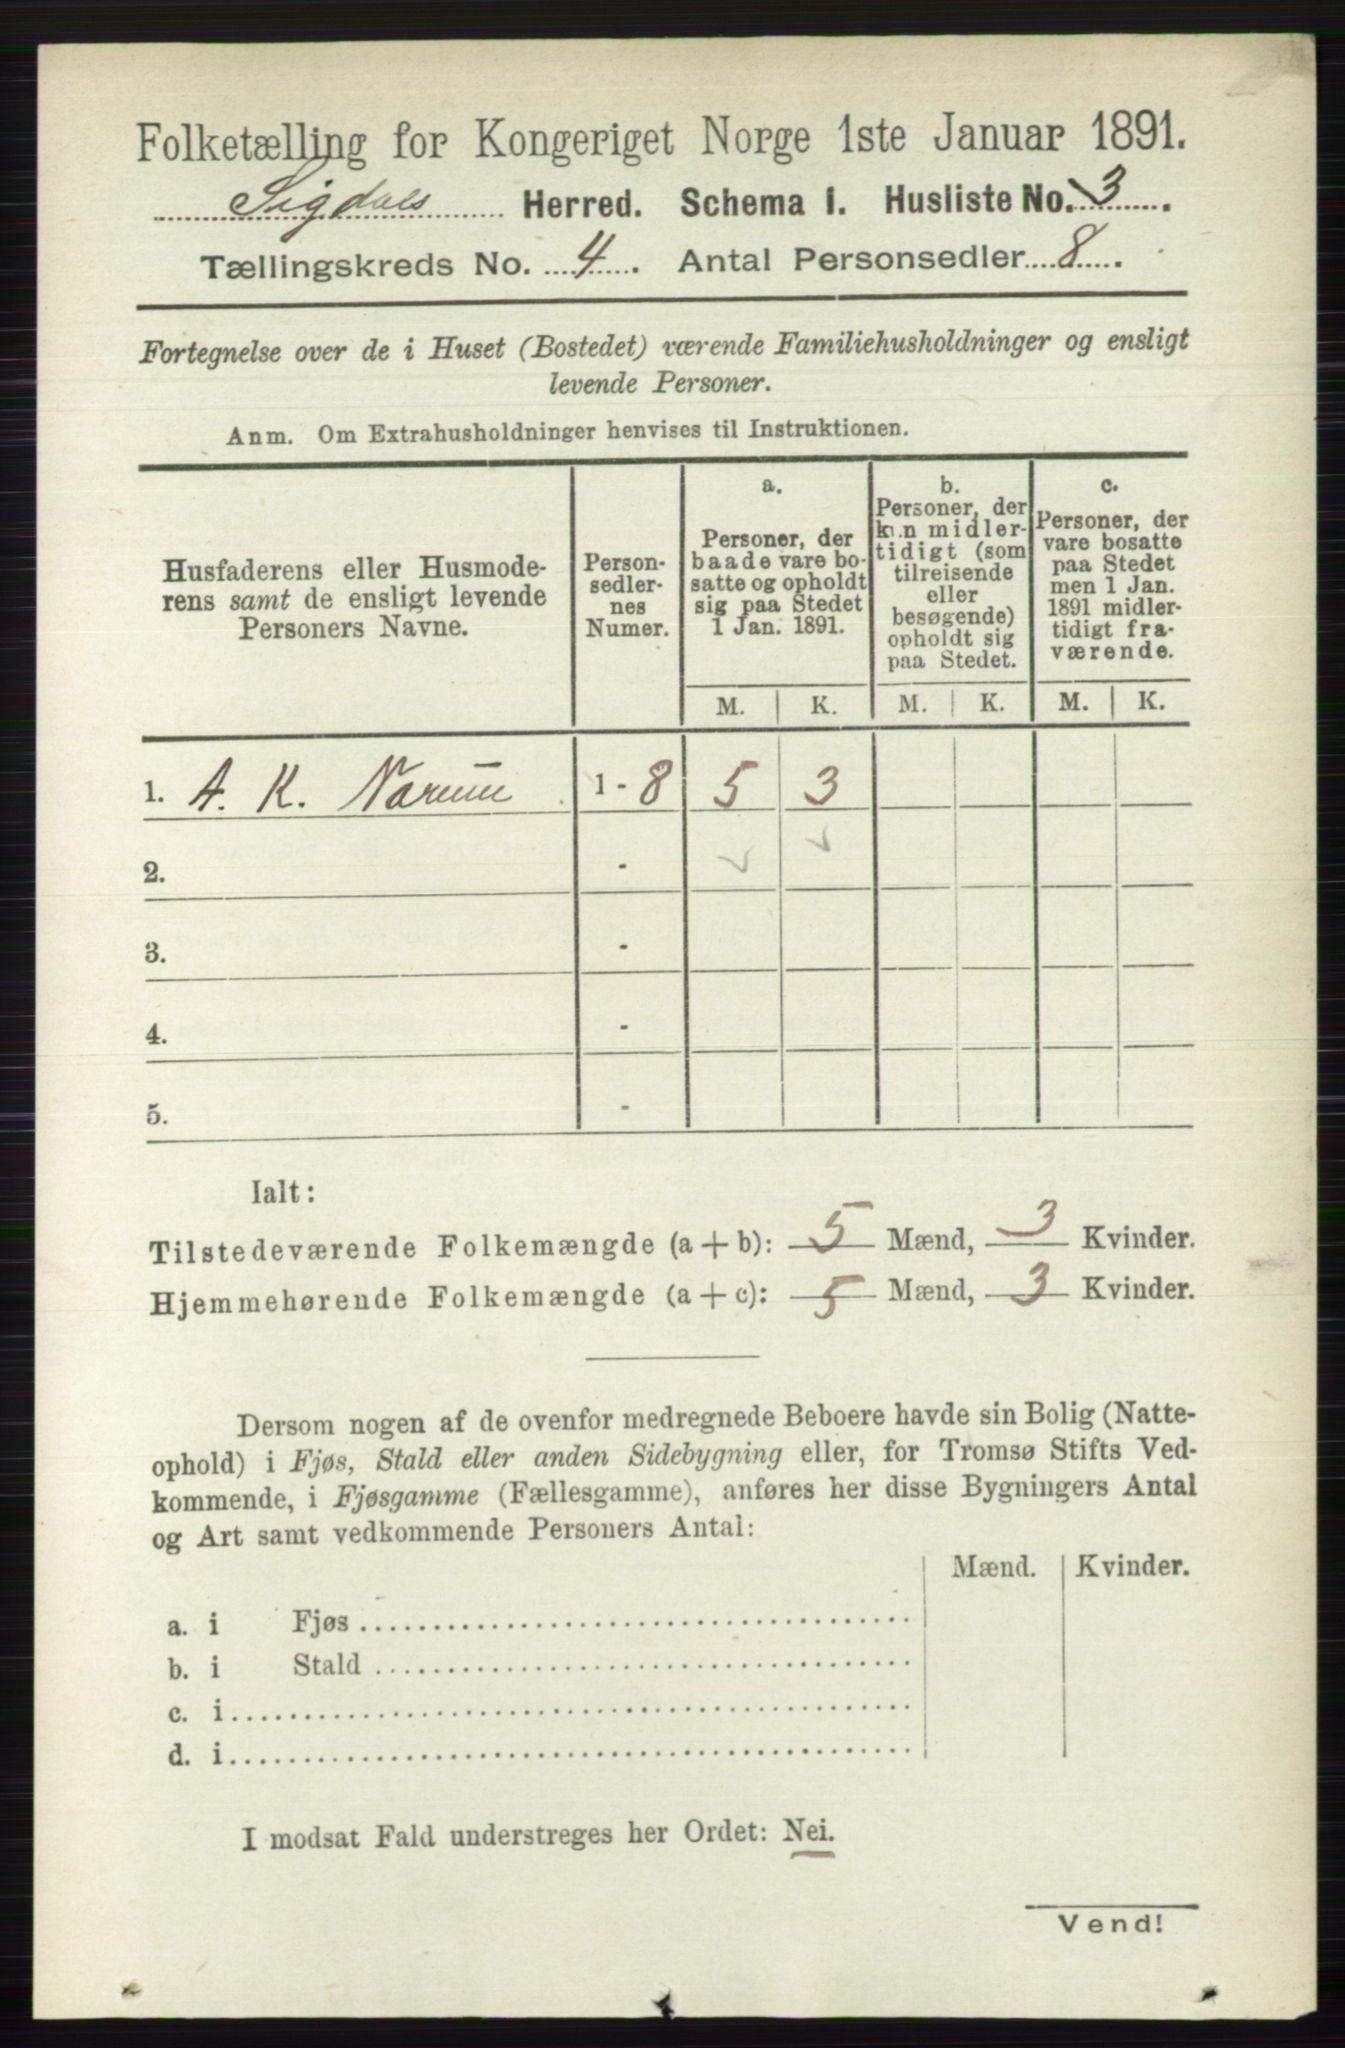 Folketælling for Kongeriget Norge 1ste Januar 1891.
Sigdals Herred. Schema 1. Husliste No. 3.
Tællingskreds No. 4. Antal Personsedler 8.
Fortegnelse over de i Huset (Bostedet) værende Familiehusholdninger og ensligt
levende Personer.
Anm. Om Extrahusholdninger henvises til Instruktionen.
Husfaderens eller Husmode-
rens samt de ensligt levende
Personers Navne.
Person-
sedler-
nes
Numer.
a.
Personer, der
baade vare bo-
satte og opholdt
sig paa Stedet
1 Jan. 1891.
b.
Personer, der
kun midler-
tidigt (som
tilreisende
eller
besøgende)
opholdt sig
paa Stedet.
c.
Personer, der
vare bosatte
paa Stedet
men 1 Jan.
1891 midler-
tidigt fra-
værende.
M. K. M. K. M. K.
1. A. K. Narum 1 - 8 5 3
2. -
3. -
4. -
5. -
Ialt:
Tilstedeværende Folkemængde (a + b): 5 Mænd, 3 Kvinder.
Hjemmehørende Folkemængde (a + c): 5 Mænd, 3 Kvinder.
Dersom nogen af de ovenfor medregnede Beboere havde sin Bolig (Natte-
ophold) i Fjøs, Stald eller anden Sidebygning eller, for Tromsø Stifts Ved-
kommende, i Fjøsgamme (Fællesgamme), anføres her disse Bygningers Antal
og Art samt vedkommende Personers Antal:
Mænd. Kvinder.
a. i Fjøs
b. i Stald
c. i
d. i
I modsat Fald understreges her Ordet: Nei.
Vend!